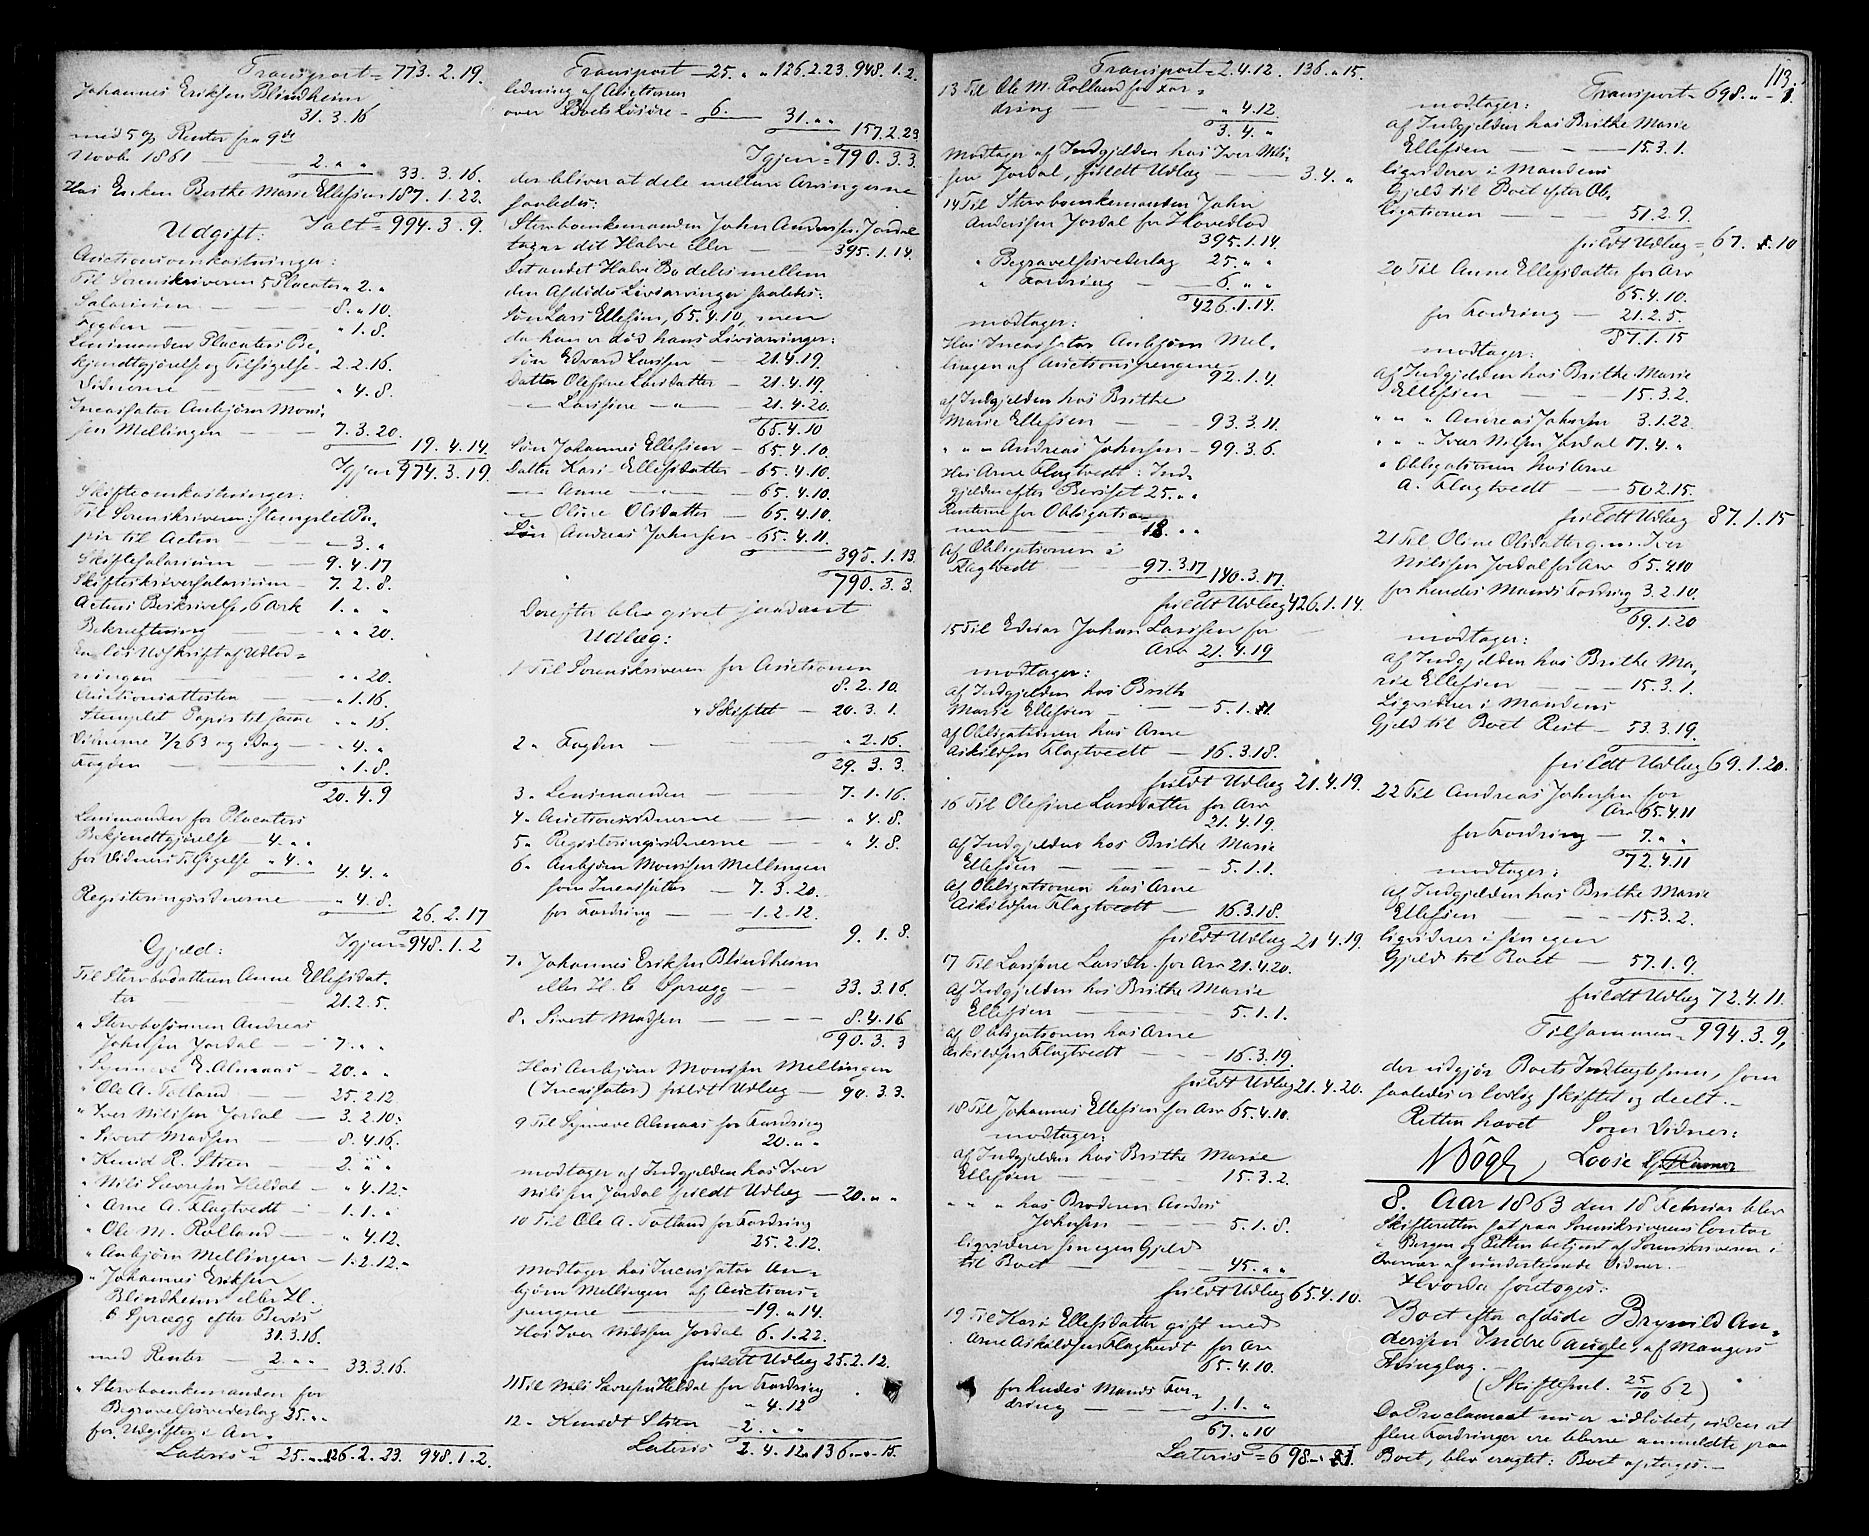 Transport = 773. 2. 19.
Johannes Eriksen Blindheim
31. 3. 16
med 5 % Renter fra 9de
Novbr 1861 — 2. " " 33. 3. 16.
Hos Enken Berthe Marie Ellefsen 187. 1. 22.
Ialt = 994. 3. 9.
Udgift:
Auctionsomkostninger:
Til Sorenskriveren 5 Placater " 2. "
Salarium — 8. " 10.
Fogden — " 1. 8.
Lensmanden Placaters Be-
kjendtgjörelse og Tilsigelse - 2. 2. 16.
Vidnerne — " 4. 8.
Incassator Anbjörn Mons-
sen Mellingen — 7. 3. 20.
19. 4. 14.
Igjen 974. 3. 19.
Skifteomkostninger:
Til Sorenskriveren: Stemplet Pa-
pir til Acten — 3. "
Skiftesalarium — 9. 4. 17
Skifteskriversalarium — 7. 2. 8.
Actens Beskrivelse, 6 Ark 1. " "
Bekræftning — " " 20.
En lös Udskrift af Udlod-
ningen — " " 20.
Auctionsattesten — " 1. 16.
Stemplet Papir til samme " " 16.
Vidnerne 7/2 63 og i Dag — " 4. "
Fogden — " 1. 8.
20. 4. 9
Lensmanden for Placaters
Bekjendtgjörelse — 4. " "
for Vidners Tilsigelse " 4. "
4. 4. "
Registeringsvidnerne — " 4. 8.
26. 2. 17
Igjen = 948. 1. 2
Gjæld:
Til Stervbodatteren Anne Ellefsdat-
ter — 21. 2. 5.
" Stervbosönnen Andreas
Johnsen Jordal — 7. " "
" Synneve E. Almaas — 20. " "
" Ole A. Totland — 25. 2. 12.
" Iver Nilssen Jordal — 3. 2. 10.
" Sivert Madsen — 8. 4. 16.
" Knud R. Steen — 2. " "
" Nils Sjurssen Heldal — " 4. 12.
" Arne A. Flagtvedt — 1. 1. "
" Ole M. Rolland — " 4. 12.
" Anbjörn Mellingen — 1. 2. 12.
" Johannes Eriksen
Blindheim eller H.
C Sprægg efter Bevis
31. 3. 16.
med Renter — 2. " " 33. 3. 16.
" Stervboenkemanden for
Begravelsesvederlag 25. " "
for Udgifter i An-
Lateris = 25. " " 126. 2. 23. 948. 1. 2.
Transport — 25. " " 126. 2. 23. 948. 1. 2.
ledning af Auctionen
over Boets Lösöre — 6. — 31. " "
157. 2. 23
Igjen = 790. 3. 3.
der bliver at dele mellem Arvingerne
saaledes:
Stervboenkemanden John Anderssen Jordal
tager det Halve eller — 395. 1. 14.
Det andet Halve Bo deles mellem
den Afdödes Livsarvinger saaledes:
Sön Lars Ellefsen, 65. 4. 10, men
da han er död hans Livsarvinger:
Sön Edvard Larssen — 21. 4. 19.
Datter Olefine Larsdatter — 21. 4. 19.
— Larsine — " — 21. 4. 20.
65. 4. 10
Sön Johannes Ellefsen — 65. 4. 10.
Datter Kari Ellefsdatter — 65. 4. 10.
— Anne — — 65. 4. 10.
— Oline Olsdatter — 65. 4. 10.
Sön Andreas Johnsen — 65. 4. 11.
395. 1. 13.
790. 3. 3.
Derefter blev givet saadant
Udlæg:
1 Til Sorenskriveren for Auctionen
8. 2. 10.
" Skiftet — 20. 3. 1.
2 " Fogden — " 2. 16.
29. 3. 3.
3 " Lensmanden — 7. 1. 16.
4 " Auctionsvidnerne — " 4. 8.
5 " Registeringsvidnerne — " 4. 8.
6 " Anbjörn Monssen Mellingen
som Incassator — 7. 3. 20.
for Fordring — 1. 2. 12.
9. 1. 8.
7 " Johannes Eriksen Blindheim
eller H. C Sprægg — 33. 3. 16.
8 " Sivert Madsen — 8. 4. 16
90. 3. 3
Hos Anbjörn Monssen Mellingen
(Incassator) fuldt Udlæg — 90. 3. 3.
9 Til Synneve Almaas for Fordring
20. " "
modtager af Indgjelden hos Iver
Nilssen Jordal fuldt Udlæg — 20. " "
10 Til Ole A. Totland for Fordring
25. 2. 12.
modtager hos Incassator An-
björn Mellingen af Auctions-
pengene — 19. " 14.
Hos Iver Nilssen Jordal 6. 1. 22.
fuldt Udlæg 25. 2. 12.
11 Til Nils Sjurssen Heldal for Fordring
" 4. 12
12 " Knudt Steen — 2. " "
Lateris 2. 4. 12 " 136 " 15.
Transport = 2. 4. 12. 136. " 15.
13 Til Ole M. Rolland for For-
dring — " 4. 12
3. 4. "
modtager af Indgjelden hos Iver Nils-
sen Jordal, fuldt Udlæg — 3. 4. "
14 Til Stervboenkemanden John
Anderssen Jordal for Hovedlod
395. 1. 14.
" Begravelsesvederlag 25. " "
" Fordring — 6. " "
426. 1. 14.
modtager:
Hos Incassator Anbjörn Mel-
lingen af Auctionspengene
92. 1. 4.
af Indgjelden hos Brithe
Marie Ellefsen — 93. 3. 11.
" " " Andreas Johnsen — 99. 3. 6.
Hos Arne Flagtvedt: Ind-
gjelden efter Beviset 25. " "
Renterne for Obligatio-
nen — 18. " "
af Obligationen i
Flagtvedt — 97. 3. 17
140. 3. 17.
fuldt Udlæg 426. 1. 14.
15 Til Edvar Johan Larssen for
Arv 21. 4. 19
modtager:
af Indgjelden hos Brith
Marie Ellefsen — 5. 1. 1.
af Obligationen hos Arne
Askildsen Flagtvedt — 16. 3. 18.
fuldt Udlæg 21. 4. 19.
16 Til Olefine Larsdatter for Arv
21. 4. 19.
af Indgjelden hos Brithe Marie
Ellefsen — 5. 1. 1.
af Obligationen hos Arne
Askildsen Flagtvedt — 16. 3. 18.
fuldt Udlæg 21. 4. 19.
17 Til Larsine Larsdtr. for Arv 21. 4. 20.
af Indgjelden hos Brithe Marie
Ellefsen — 5. 1. 1.
af Obligationen hos Arne
Askildsen Flagtvedt — 16. 3. 19.
fuldt Udlæg 21. 4. 20.
18 Til Johannes Ellefsen for Arv 65. 4. 10.
modtager:
af Indgjelden hos Brithe Marie
Ellefsen — 15. 3. 2.
" " " hos Broderen Andreas
Johnsen — 5. 1. 8.
liqviderer sin egen Gjeld
til Boet — 45. " "
fuldt Udlæg 65. 4. 10.
19 Til Kari Ellefsdatter gift med
Arne Askildsen Flagtvedt for Arv
65. 4. 10.
for hendes Mands For-
dring — 1. 1. "
67. " 10
Lateris = 698. " 1.
113.
Transport = 698. " 1.
modtager:
af Indgjelden hos Brithe Marie
Ellefsen — 15. 3. 1.
liqviderer i Mandens
Gjeld til Boet efter Ob-
ligationen — 51. 2. 9.
fuldt Udlæg = 67. " 10
20 Til Anne Ellefsdatter for Arv
65. 4. 10.
for Fordring — 21. 2. 5.
87. 1. 15
modtager:
af Indgjelden hos Brithe Marie
Ellefsen — 15. 3. 2.
" " " Andreas Johnsen 3. 1. 22.
" " " Iver Nilsen Jordal 17. 4. "
" Obligationen hos Arne
A. Flagtvedt — 50 2. 15.
fuldt Udlæg 87. 1. 15
21 Til Oline Olsdatter g. m. Iver
Nilssen Jordal for Arv 65. 4. 10
for hendes Mands Fordring 3. 2. 10.
69. 1. 20
modtager:
af Indgjelden hos Brithe Ma-
rie Ellefsen — 15. 3. 1.
Liqviderer i Mandens
Gjeld til Boet Rest — 53. 3. 19.
fuldt Udlæg 69. 1. 20.
22 Til Andreas Johnsen for
Arv 65. 4. 11
for Fordring — 7. " "
72. 4. 11
modtager:
af Indgjelden hos Brithe Marie
Ellefsen — 15. 3. 2.
liqviderer i sin egen
Gjeld til Boet — 57. 1. 9.
fuldt Udlæg 72. 4. 11.
Tilsammen = 994. 3. 9,
der udgjör Boets Indtægtssum, som
saaledes er lovlig skiftet og deelt. —
Retten hævet Som Vidner:
8. Aar 1863 den 18 Februar blev
Skifteretten sat paa Sorenskriverens Contor
i Bergen og Retten betjent af Sorenskriveren i
Overvær af undertegnede Vidner.
Hvorda foretoges:
Boet efter afdöde Brynild An-
derssen Indre Taugle, af Mangers
Thinglag. —
(Skiftepnl. 25/10 62)
Da Proclamaet nu er udlöbet, uden at
flere Fordringer ere blevne anmeldte paa
Boet, blev eragtet: Boet optages. —